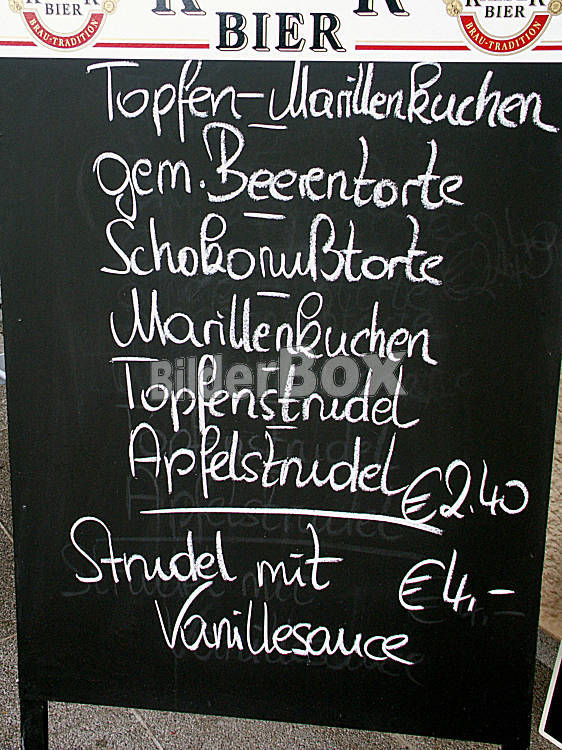 BIER
BRAU-TRADITION
BIER
KAISER
BIER
BRAU-TRADITION
Topfen-Marillenkuchen
gem. Beerentorte
Schokonußtorte
Marillenkuchen
BilderBOX
Topfenstrudel
Apfelstrudel €2.40
Strudel mit €4,-
Vanillesauce